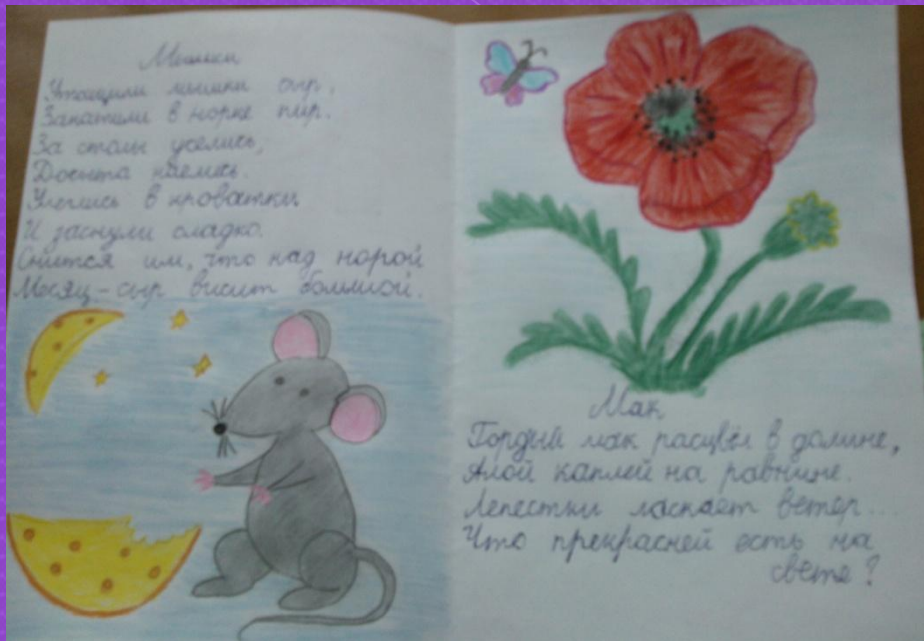 Мышки
Утащили мышки сыр,
Закатили в норке пир.
За столы уселись,
Досыта наелись.
Улеглись в кроватки
И заснули сладко.
Снится им, что над норой
Месяц-сыр висит большой.
Мак
Гордый мак расцвёл в долине,
Алой каплей на равнине.
Лепестки ласкает ветер...
Что прекрасней есть на
свете?